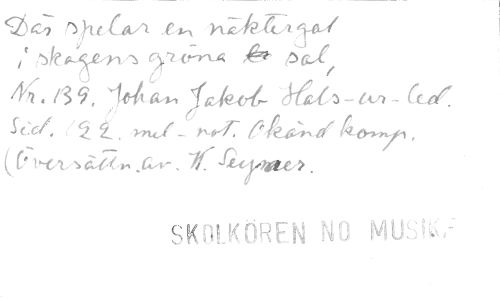 Där spelar en näktergal
i skogens gröna sal,
Nr. 139. Johan Jakob Hals-ur-led.
Sid. 122. mel-not. Okänd komp.
(Översättn. av. K. Seymer.
SKOLKÖREN NO MUSIK